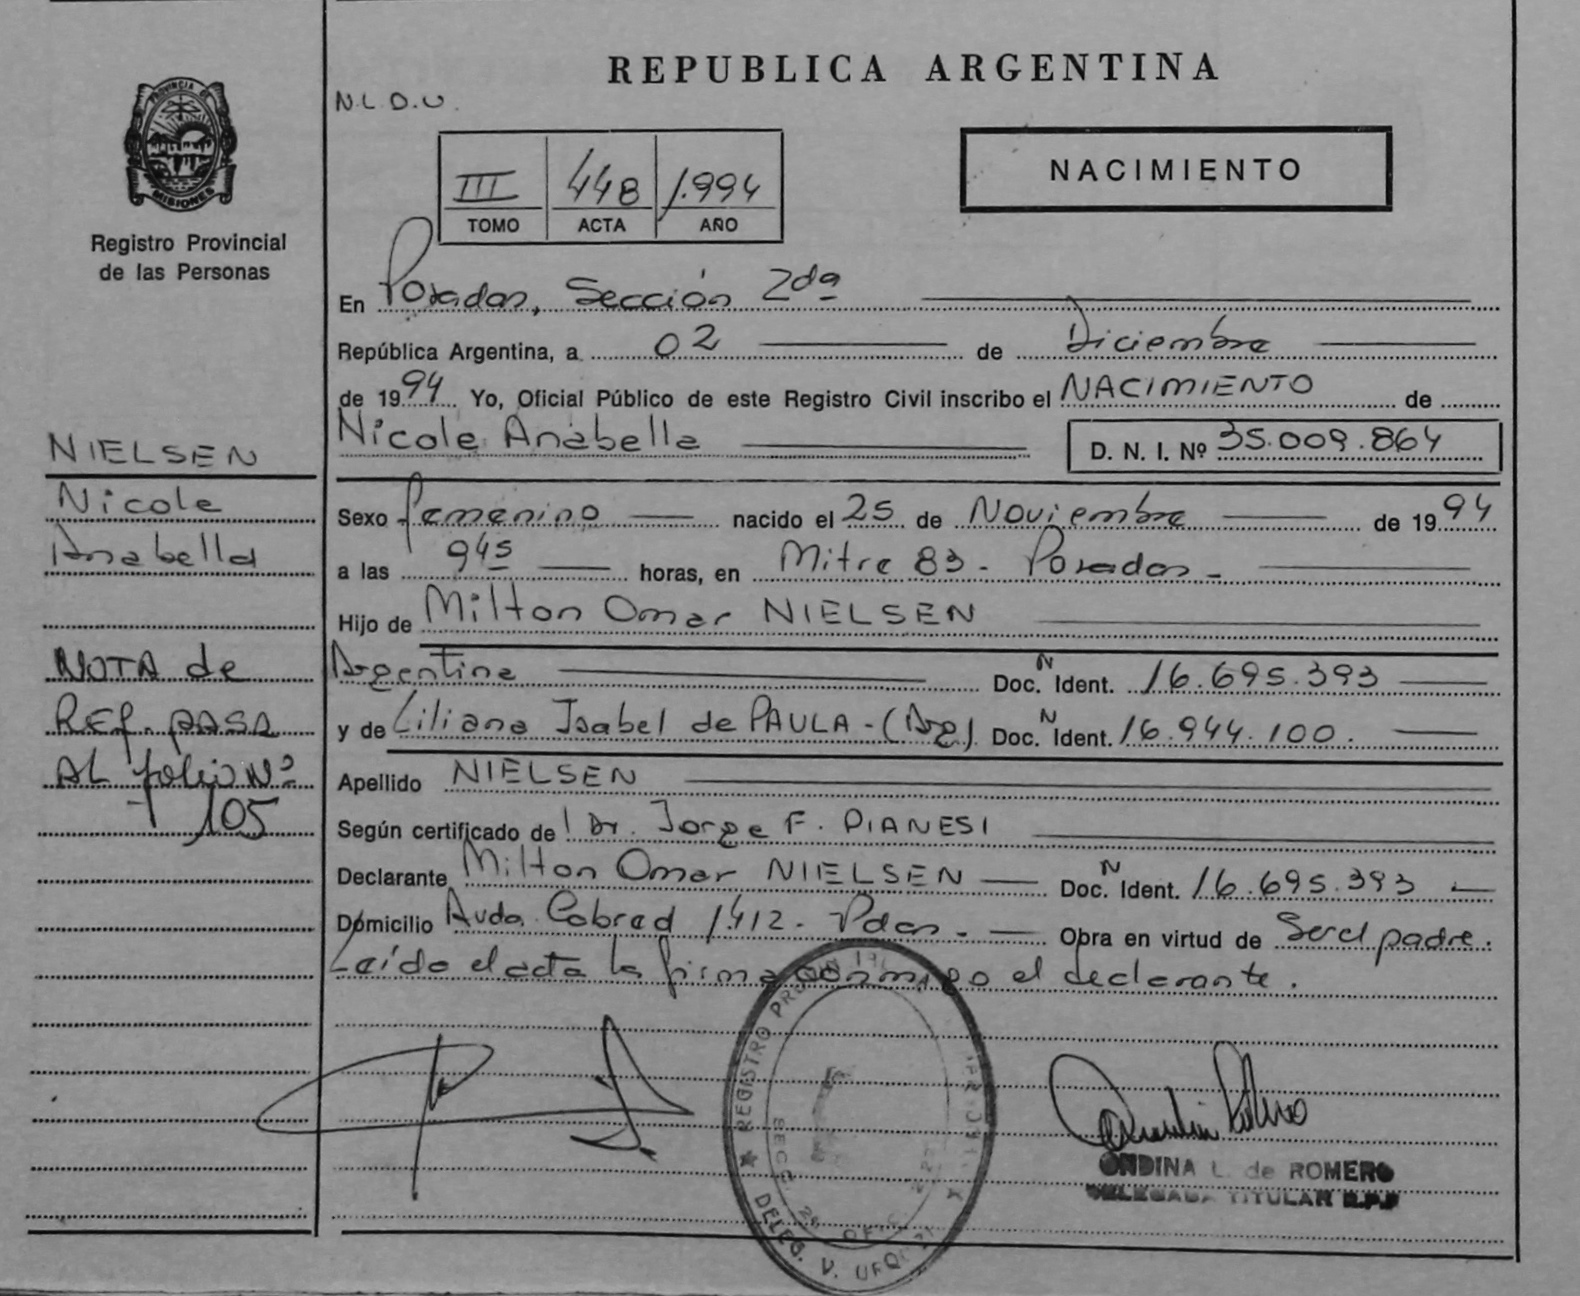 REPUBLICA ARGENTINA
PROVINCIA DE
MISIONES
Registro Provincial
de las Personas
N.L.D.U.
III 448 1.994
TOMO ACTA AÑO
NACIMIENTO
En Posadas, Sección 2da
República Argentina, a 02 de Diciembre
de 1994 Yo, Oficial Público de este Registro Civil inscribo el NACIMIENTO de
Nicole Anabella D. N. I. Nº 35.009.864
Sexo femenino nacido el 25 de Noviembre de 1994
a las 945 horas, en Mitre 83 - Posadas -
Hijo de Milton Omar NIELSEN
Argentina Doc. N Ident. 16.695.393
y de Liliana Isabel de PAULA - (Arg) Doc. N Ident. 16.944.100.
Apellido NIELSEN
Según certificado de Dr. Jorge F. PIANESI
Declarante Milton Omar NIELSEN Doc. N Ident. 16.695.393
Domicilio Avda. Cabred 1.412 - Pdas - Obra en virtud de Ser el padre.
Leído el acta la firma conmigo el declarante.
NIELSEN
Nicole
Anabella
NOTA de
REF. PASA
AL folio Nº
105
REGISTRO
DELEG. V. URQ
SECC. 2ª OFIC
ONDINA L. de ROMERO
DELEGADA TITULAR R.P.P